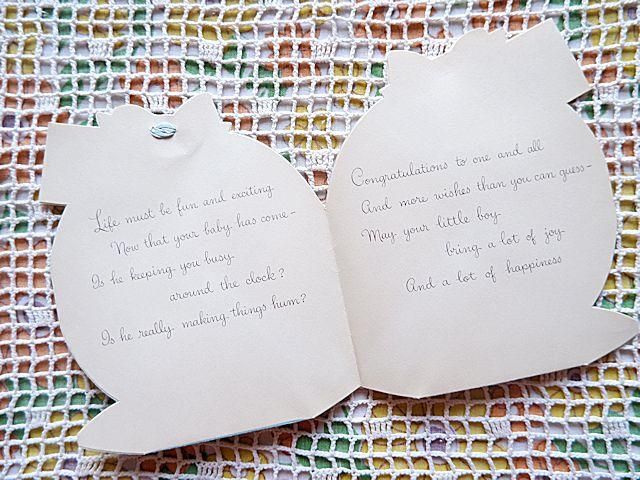 Life must be fun and exciting
Now that your baby has come-
Is he keeping you busy
around the clock?
Is he really making things hum?
Congratulations to one and all
And more wishes than you can guess-
May your little boy
bring a lot of joy
And a lot of happiness